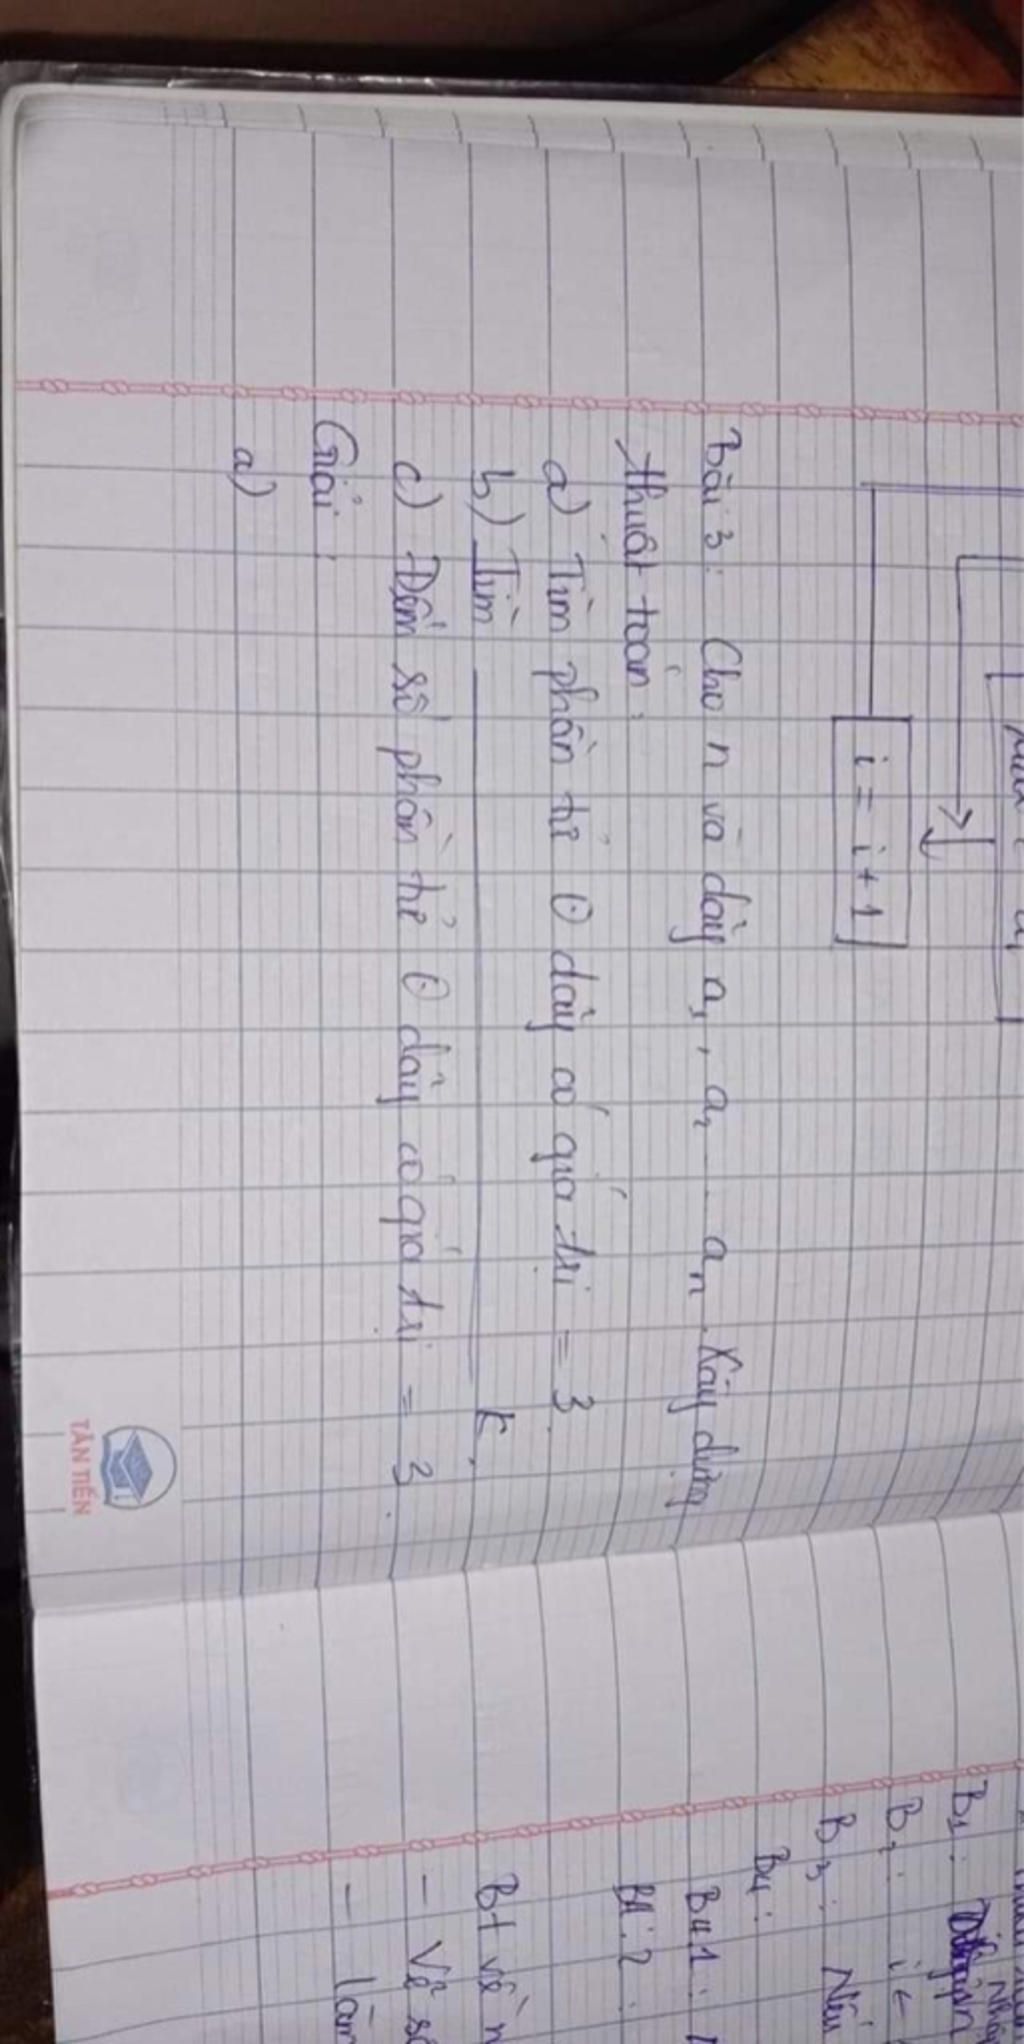 i = i + 1
Bài 3: Cho n và dãy a₁, a₂ ... aₙ. Xây dựng
thuật toán:
a) Tìm phần tử ∈ dãy có giá trị = 3.
b) Tìm ——— K.
c) Đếm số phần tử ∈ dãy có giá trị = 3.
Giải:
a)
TÂN TIẾN
B₁:
B₂: i ←
B₃: Nếu
B4:
B4.1:
B4.2:
Bt về n
- Vẽ sơ
- làm